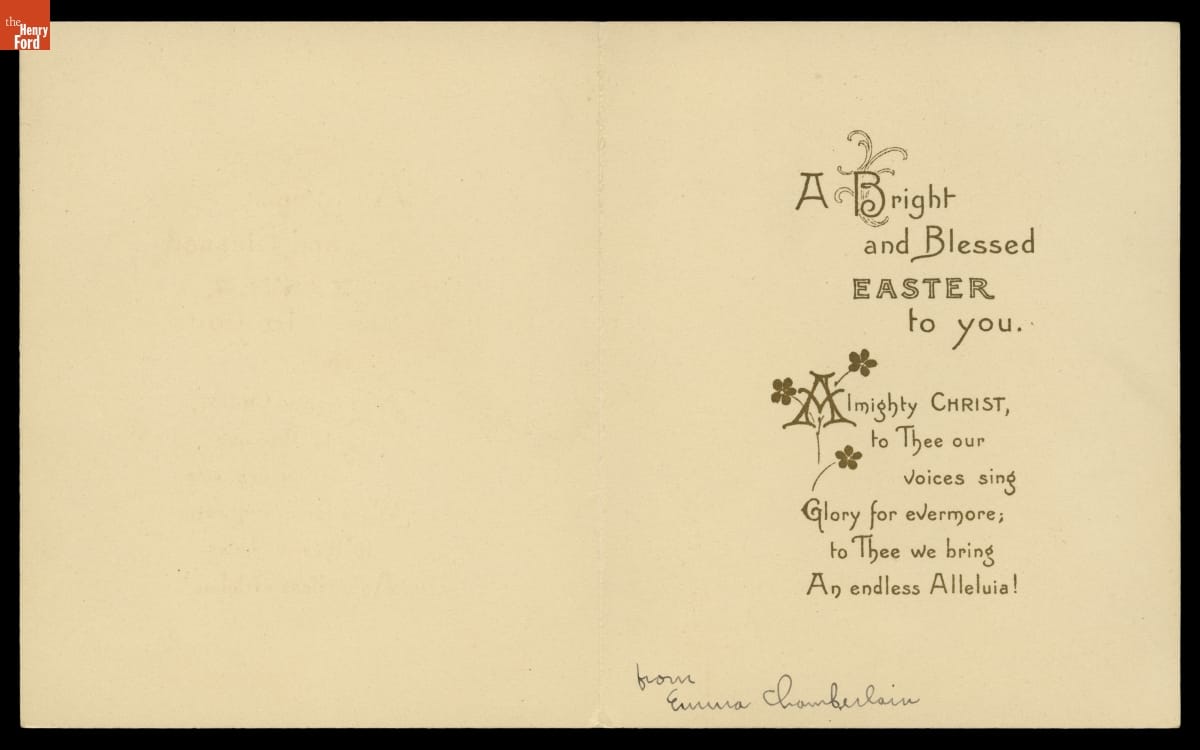 the
Henry
Ford
A Bright
and Blessed
EASTER
to you.
Almighty CHRIST,
to Thee our
voices sing
Glory for evermore;
to Thee we bring
An endless Alleluia!
from
Emma Chamberlain